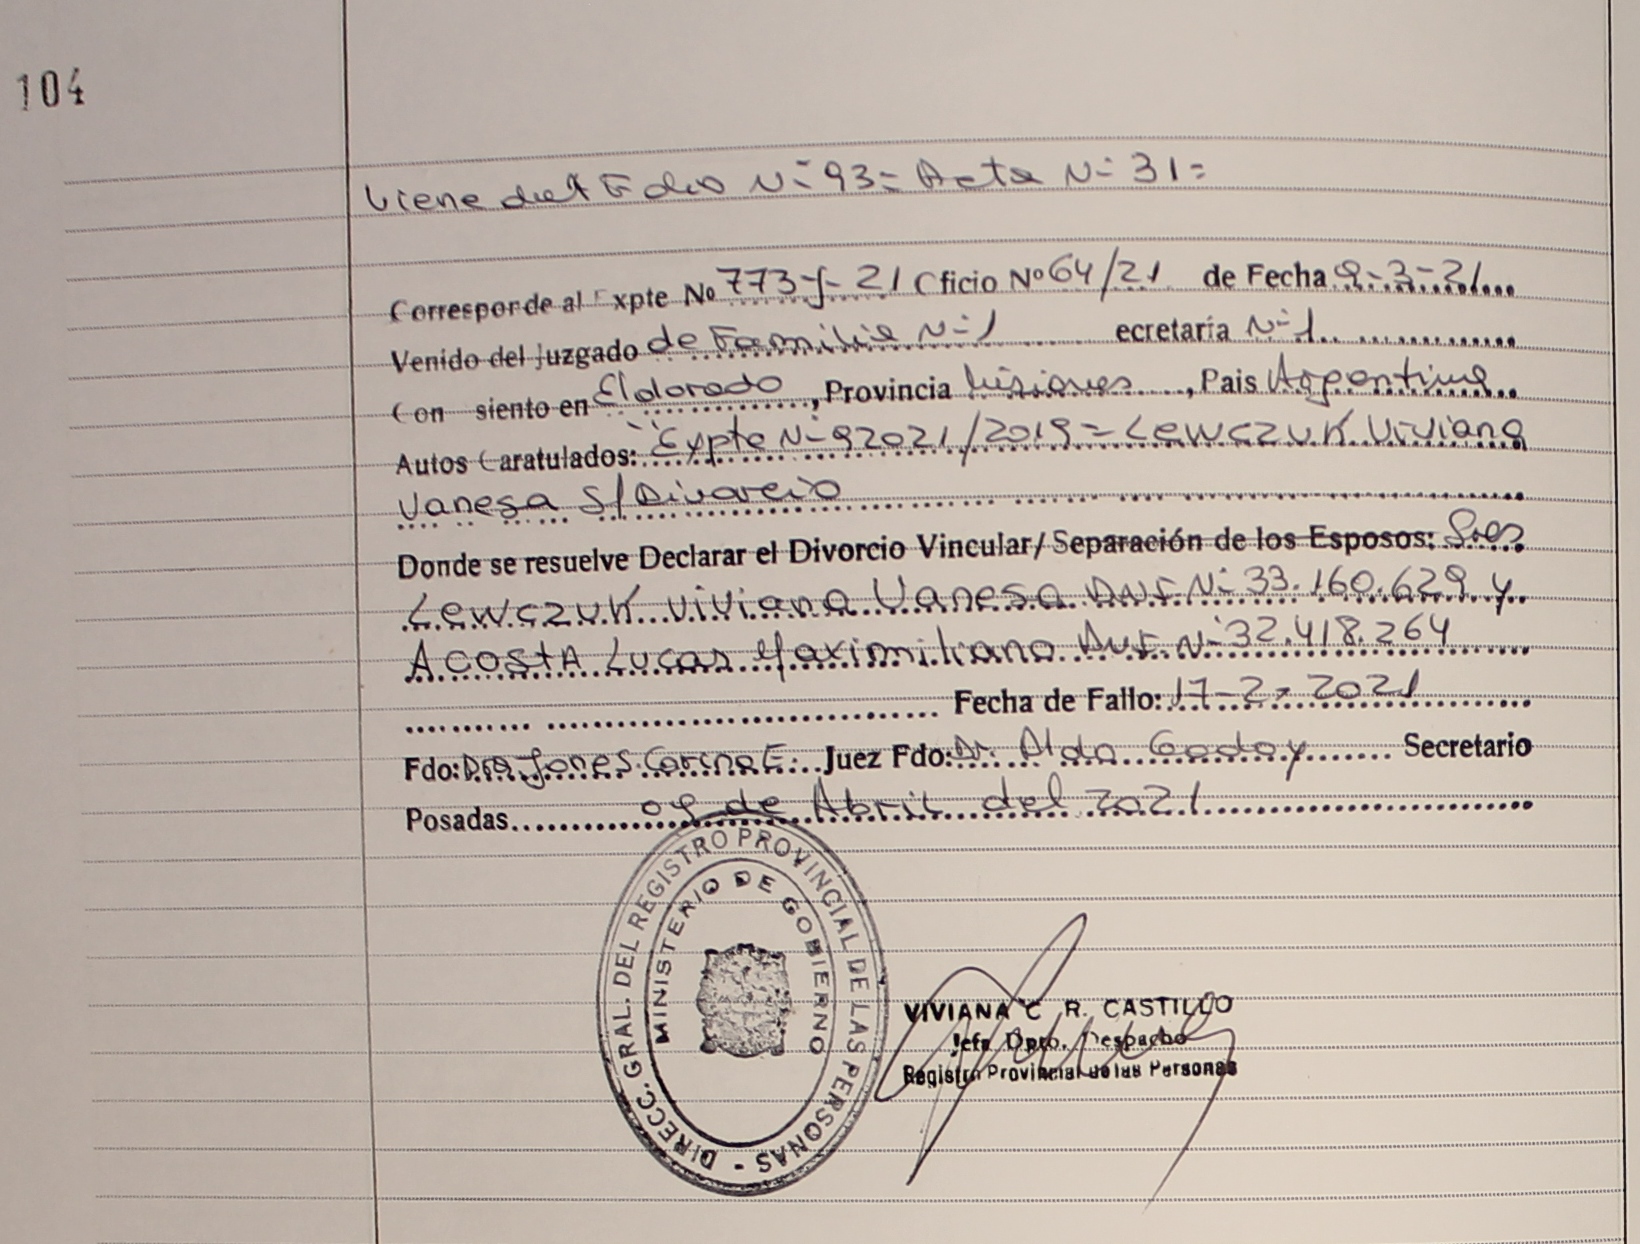 104
Viene del Folio N= 93= Acta N= 31=
Corresponde al Expte No 773-J- 21 Oficio Nº 64/21 de Fecha 9-3-21
Venido del Juzgado de Familia N=1 ecretaría N=1
Con siento en Eldorado, Provincia Misiones, Pais Argentina
Autos Caratulados: "Expte N=92021/2019= LEWCZUK Viviana
Vanesa S/Divorcio
Donde se resuelve Declarar el Divorcio Vincular/ Separación de los Esposos: Sres
LEWCZUK Viviana Vanesa DNI N= 33.160.629 y
ACOSTA Lucas Maximiliano DNI N= 32.418.264
Fecha de Fallo: 17-2-2021
Fdo: Dra Jones Corina E. Juez Fdo: Dr. Aldo Godoy Secretario
Posadas 09 de Abril del 2021
DIRECC. GRAL. DEL REGISTRO PROVINCIAL DE LAS PERSONAS -
MINISTERIO DE GOBIERNO
VIVIANA C. R. CASTILLO
Jefa Dpto. Despacho
Registro Provincial de las Personas